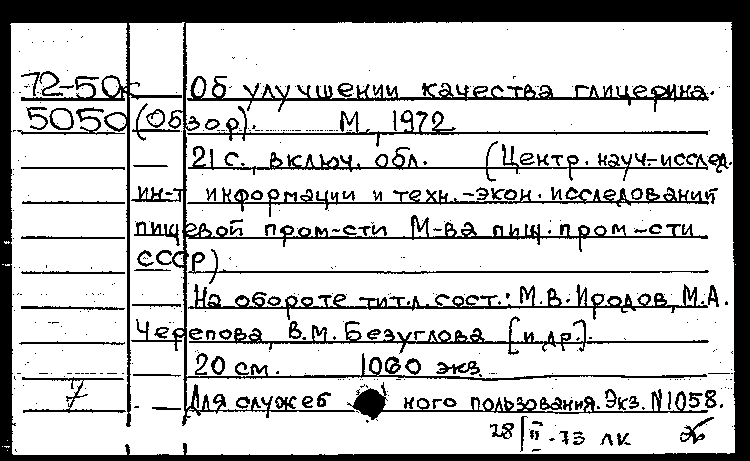 72-50с Об улучшении качества глицерина.
5050 (Обзор). М., 1972
— 21 с., включ. обл. (Центр. науч.-исслед.
ин-т информации и техн.-экон. исследований
пищевой пром-сти М-ва пищ. пром-сти
СССР)
— На обороте тит. л. сост.: М.В. Иродов, М.А.
Черепова, В.М. Безуглова [и др.].
20 см. 1000 экз
7 — Для служебного пользования. Экз. №1058.
28/II-73 ЛК